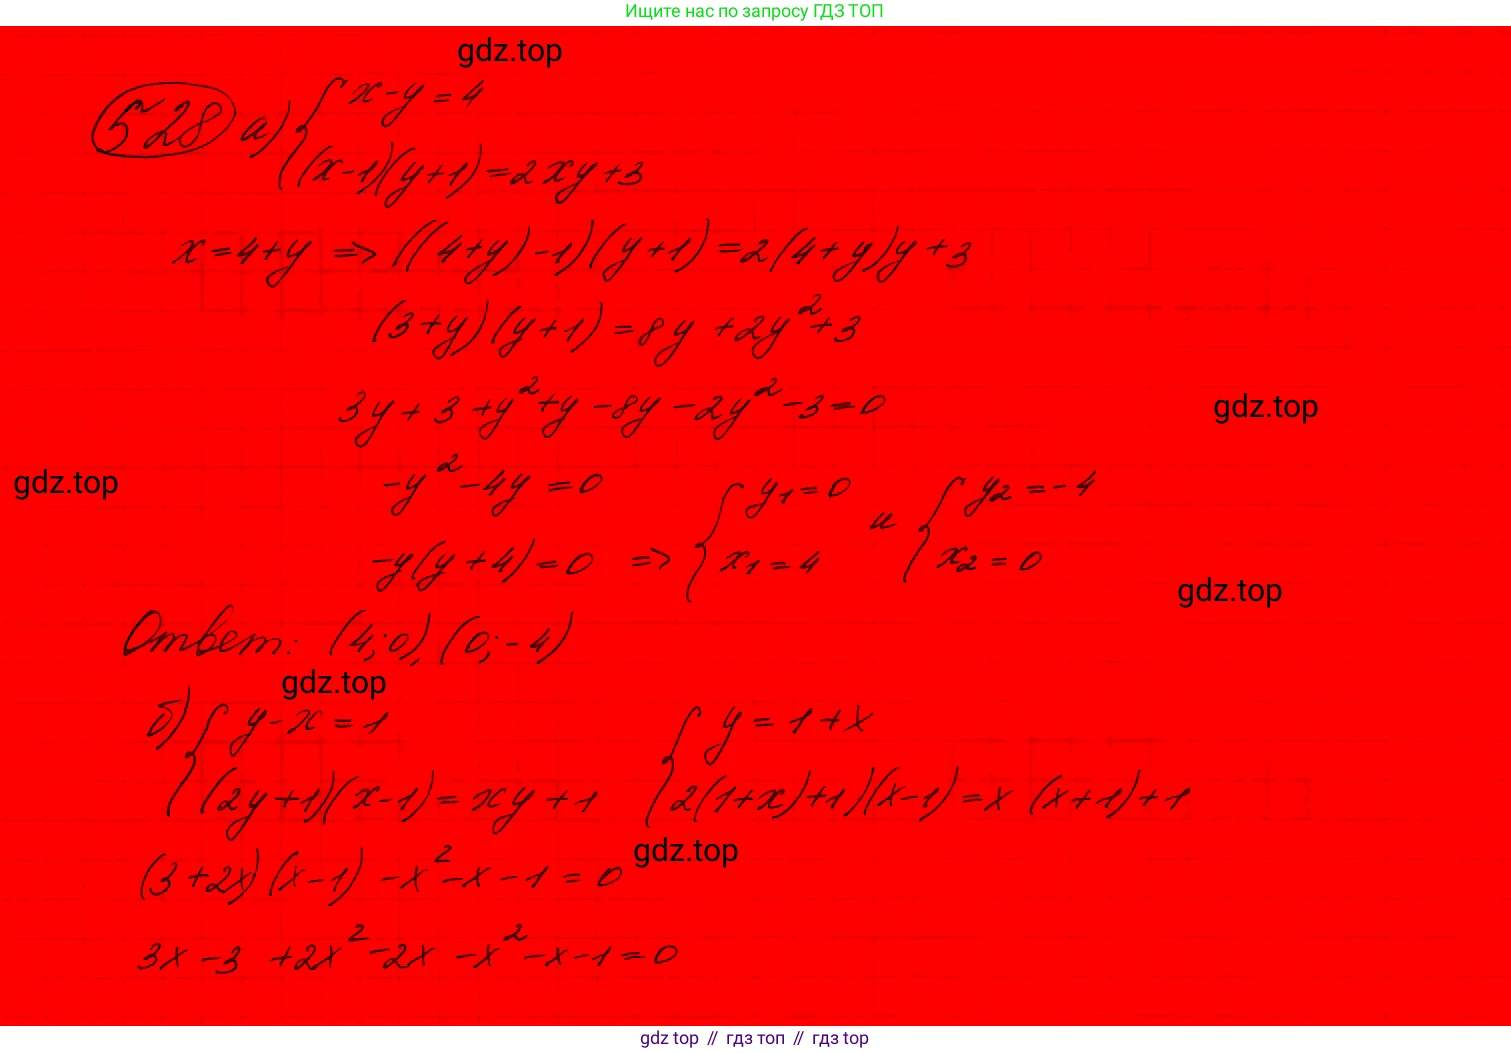 Ищите нас по запросу ГДЗ ТОП
gdz.top
528 а) { x-y=4
(x-1)(y+1)=2xy+3
x=4+y => ((4+y)-1)(y+1)=2(4+y)y+3
(3+y)(y+1)=8y+2y²+3
3y+3+y²+y-8y-2y²-3=0
gdz.top
-y²-4y=0
gdz.top
-y(y+4)=0 => { y₁=0 x₁=4 и { y₂=-4 x₂=0
gdz.top
Ответ: (4;0), (0;-4)
gdz.top
б) { y-x=1 { y=1+x
(2y+1)(x-1)=xy+1 2(1+x)+1)(x-1)=x(x+1)+1
gdz.top
(3+2x)(x-1)-x²-x-1=0
3x-3+2x²-2x-x²-x-1=0
gdz top // гдз топ // гдз top